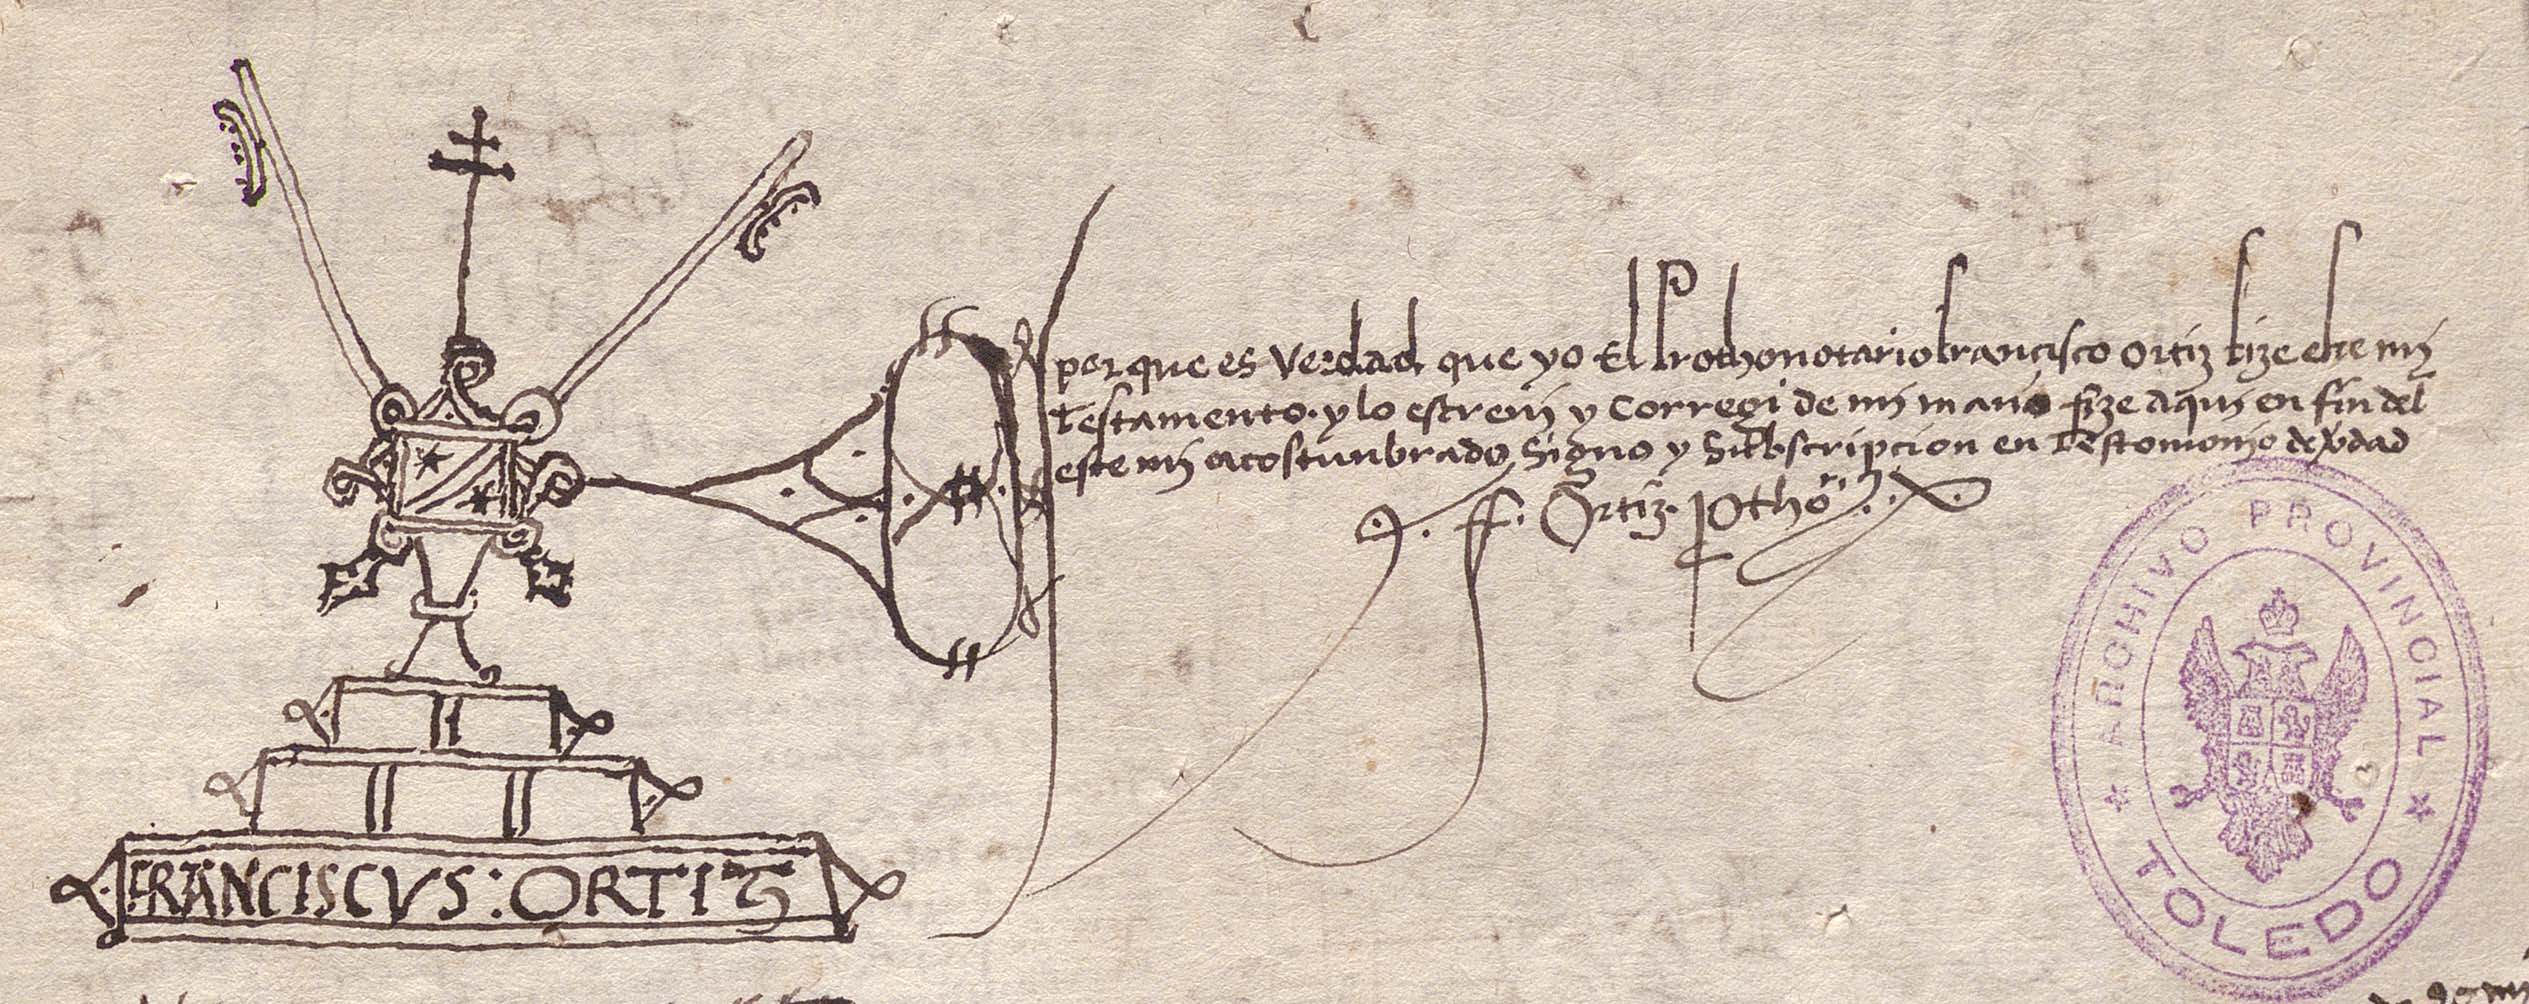 E porque es verdad que yo El Prothonotario francisco ortiz fize este mi
Testamento. y lo escreui y Corregi de mi mano fize aqui en fin del
este mi acostunbrado Signo y Subscripcion en Testomonio de vdad
.ff. Ortiz. protho.rio
FRANCISCVS : ORTIZ
ARCHIVO PROVINCIAL
TOLEDO